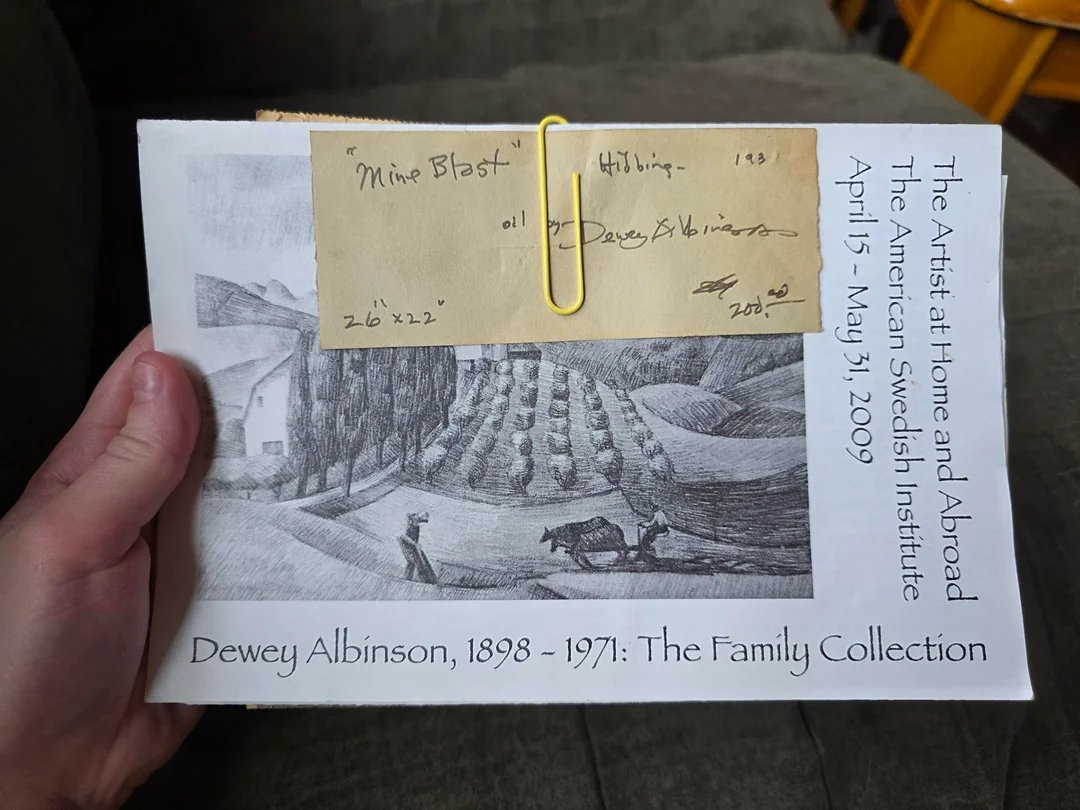 "Mine Blast" Hibbing- 193
oil by Dewey Albinson
26" x 22"
200.00
The Artist at Home and Abroad
The American Swedish Institute
April 15 - May 31, 2009
Dewey Albinson, 1898 - 1971: The Family Collection